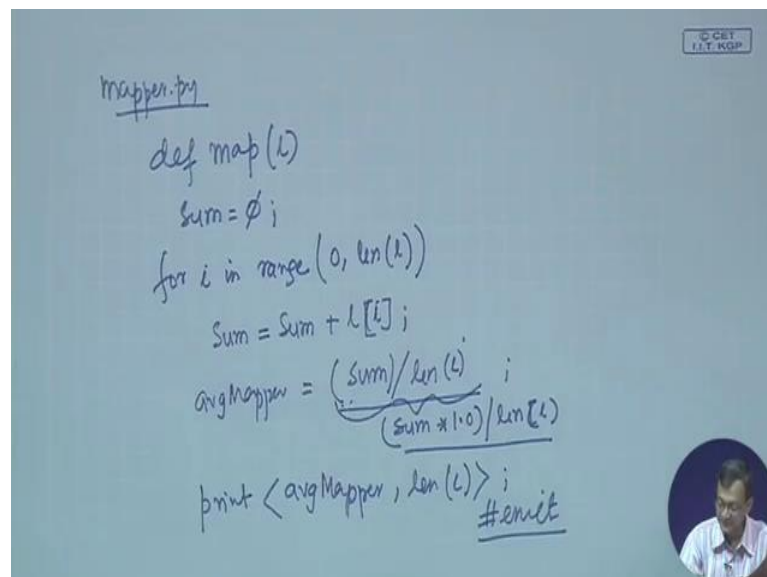 © CET
I.I.T. KGP
mapper.py
def map(l)
sum = ∅ ;
for i in range (0, len(l))
sum = sum + l[i] ;
avgMapper = (sum)/len(l) ;
(sum * 1.0)/len[l)
print <avgMapper, len(l)> ;
#emit